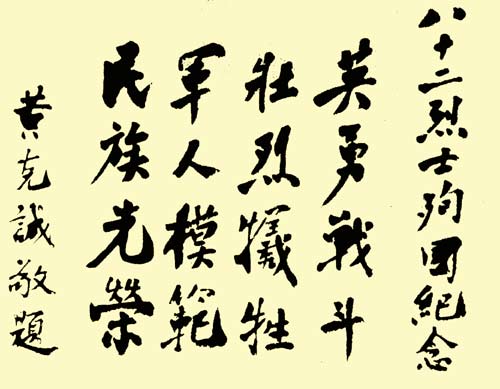 八十二烈士殉国紀念
英勇战斗
壮烈犠牲
軍人模範
民族光榮
黄克誠敬題